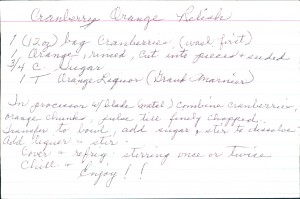 Cranberry Orange Relish
1 (12oz) bag Cranberries, (wash first)
1 Orange, rinsed, cut into pieces + seeded
3/4 C. Sugar
1 T Orange Liquor (Grand Marnier)
In processor w/blade (metal) combine cranberries,
orange chunks, pulse till finely chopped.
Transfer to bowl, add sugar, stir to dissolve
Add liquor - stir -
Cover + refrig. stirring once or twice
Chill + Enjoy!!